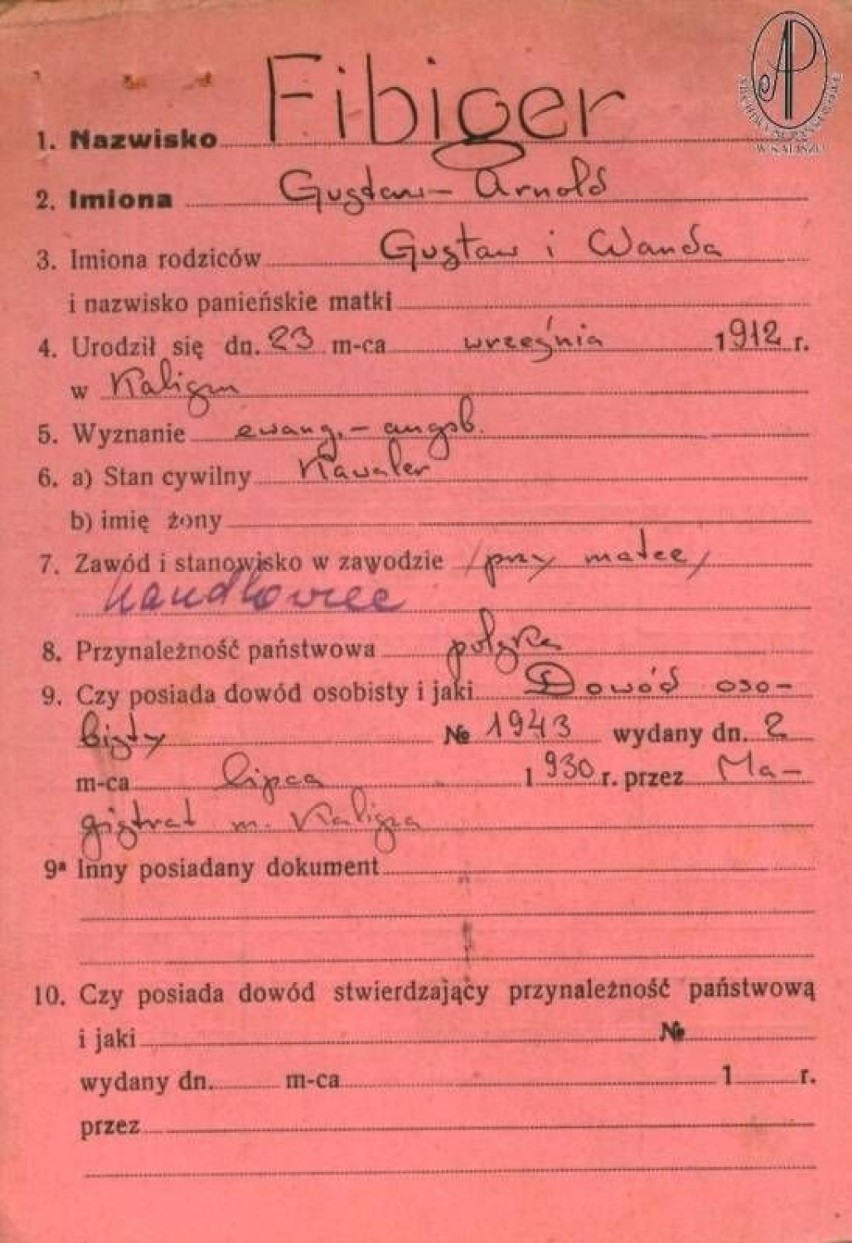 1. Nazwisko Fibiger
2. Imiona Gustaw-Arnold
3. Imiona rodziców Gustaw i Wanda
i nazwisko panieńskie matki
4. Urodził się dn. 23 m-ca września 1912 r.
w Kaliszu
5. Wyznanie ewang.-augsb.
6. a) Stan cywilny Kawaler
b) imię żony
7. Zawód i stanowisko w zawodzie /przy matce/
handlowiec
8. Przynależność państwowa polska
9. Czy posiada dowód osobisty i jaki Dowód oso-
bisty № 1943 wydany dn. 2
m-ca lipca 1930 r. przez Ma-
gistrat m. Kalisza
9a Inny posiadany dokument
10. Czy posiada dowód stwierdzający przynależność państwową
i jaki №
wydany dn. m-ca 1 r.
przez
AP
ARCHIWUM PAŃSTWOWE
W KALISZU